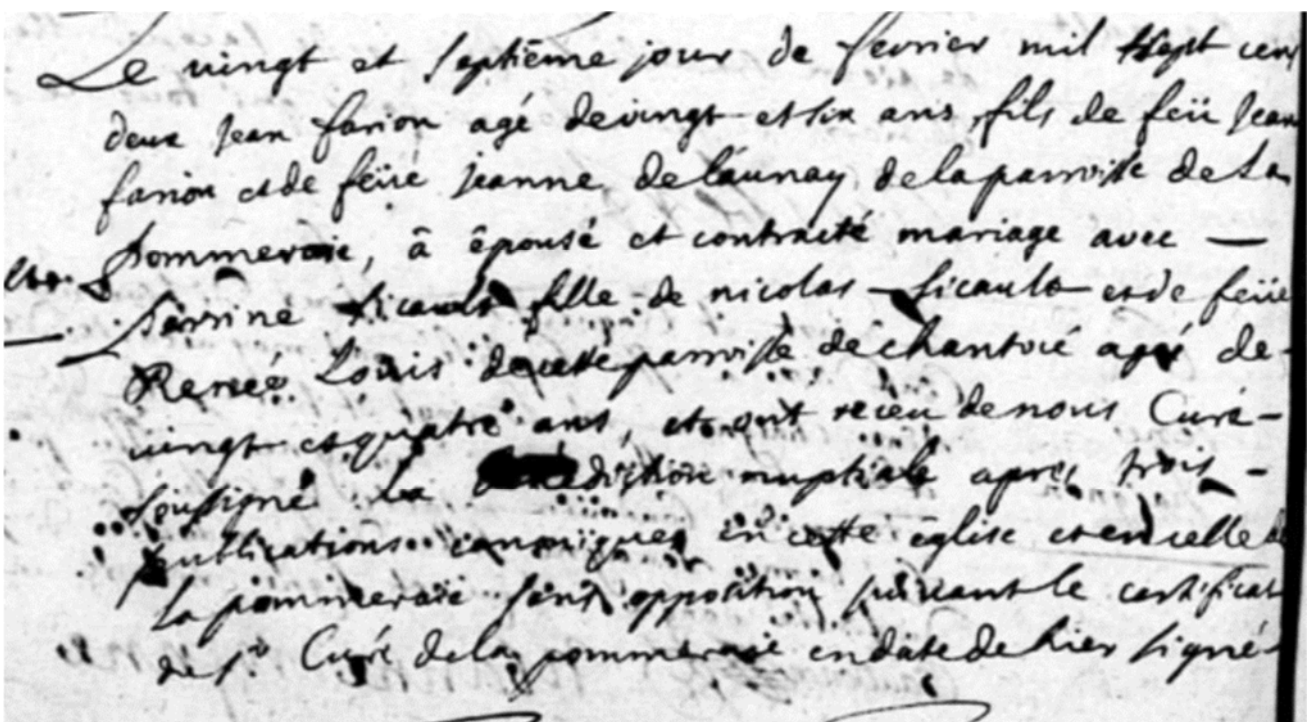 Le vingt et septiême jour de fevrier mil sept cent
deux Jean farion agé de vingt et six ans, fils de feü Jean
farion et de feüe Jeanne delaunay de la parroisse de La
pommeraie, â êpousé et contracté mariage avec —
perrine sicault fille de nicolas sicault et de feüe
Reneé Louis de cette parroisse de chantocé ageé de
vingt et quatre ans, et ont receu de nous Curé
soussigné La benediction nuptiale apres trois
publications canoniques en cette êglise et en celle de
la pommeraie sans opposition suivant le certificat
de Sr Curé de la pommeraie en date de hier signé